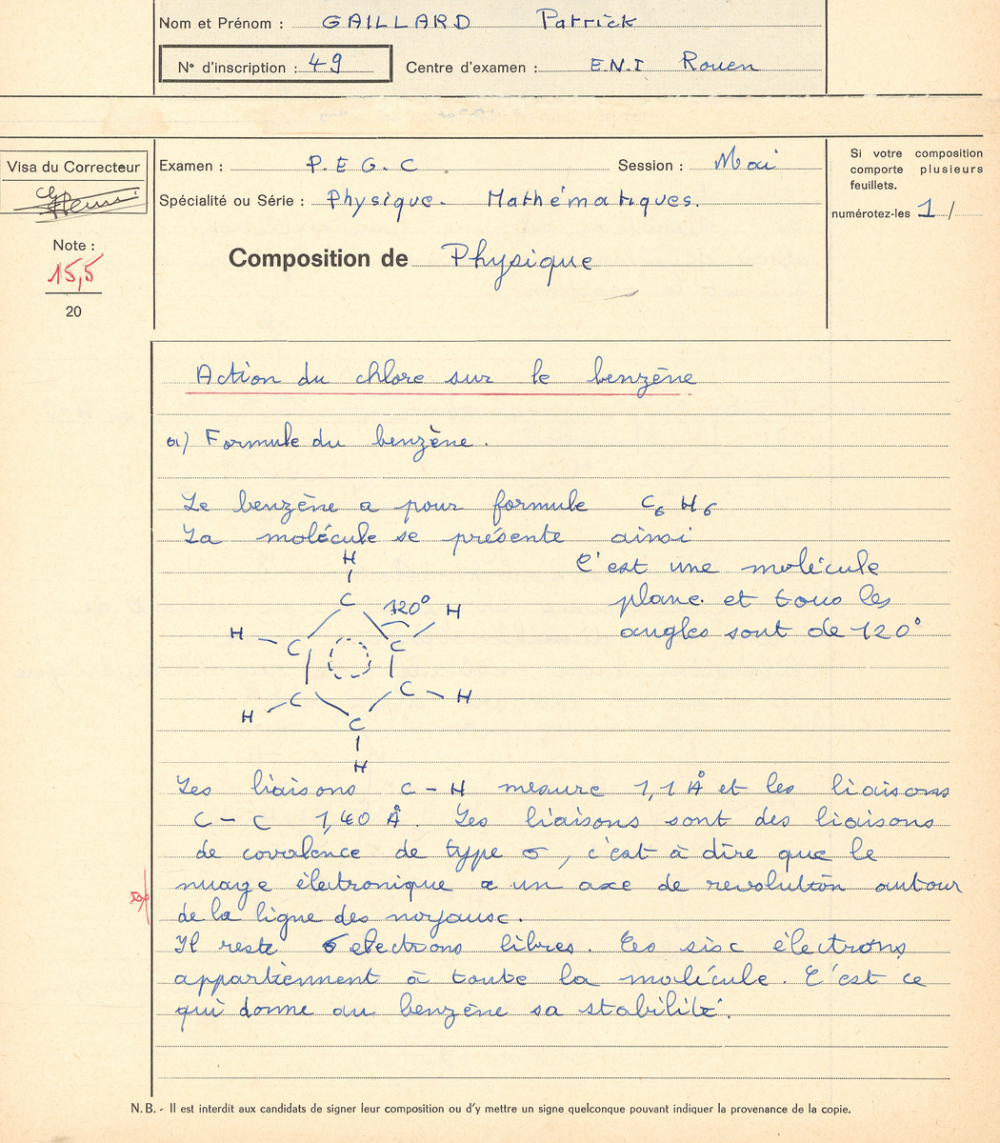 Nom et Prénom : GAILLARD Patrick
N° d'inscription : 49 Centre d'examen : E.N.I Rouen
Visa du Correcteur
Examen : P.E.G.C Session : Mai
Si votre composition
comporte plusieurs
feuillets.
numérotez-les 1 /
Spécialité ou Série : Physique. Mathématiques.
Note :
15,5
20
Composition de Physique
Action du chlore sur le benzène
a) Formule du benzène.
Le benzène a pour formule C6 H6
La molécule se présente ainsi
C'est une molécule
plane. et tous les
angles sont de 120°
H
C 120° H
H C C
C C H
H C
H
Les liaisons C - H mesure 1,1 Å et les liaisons
C - C 1,40 Å. Les liaisons sont des liaisons
de covalence de type σ, c'est à dire que le
nuage électronique a un axe de revolution autour
de la ligne des noyaux.
Il reste 6 electrons libres. Ces six électrons
appartiennent à toute la molécule. C'est ce
qui donne au benzène sa stabilité.
N.B. - Il est interdit aux candidats de signer leur composition ou d'y mettre un signe quelconque pouvant indiquer la provenance de la copie.